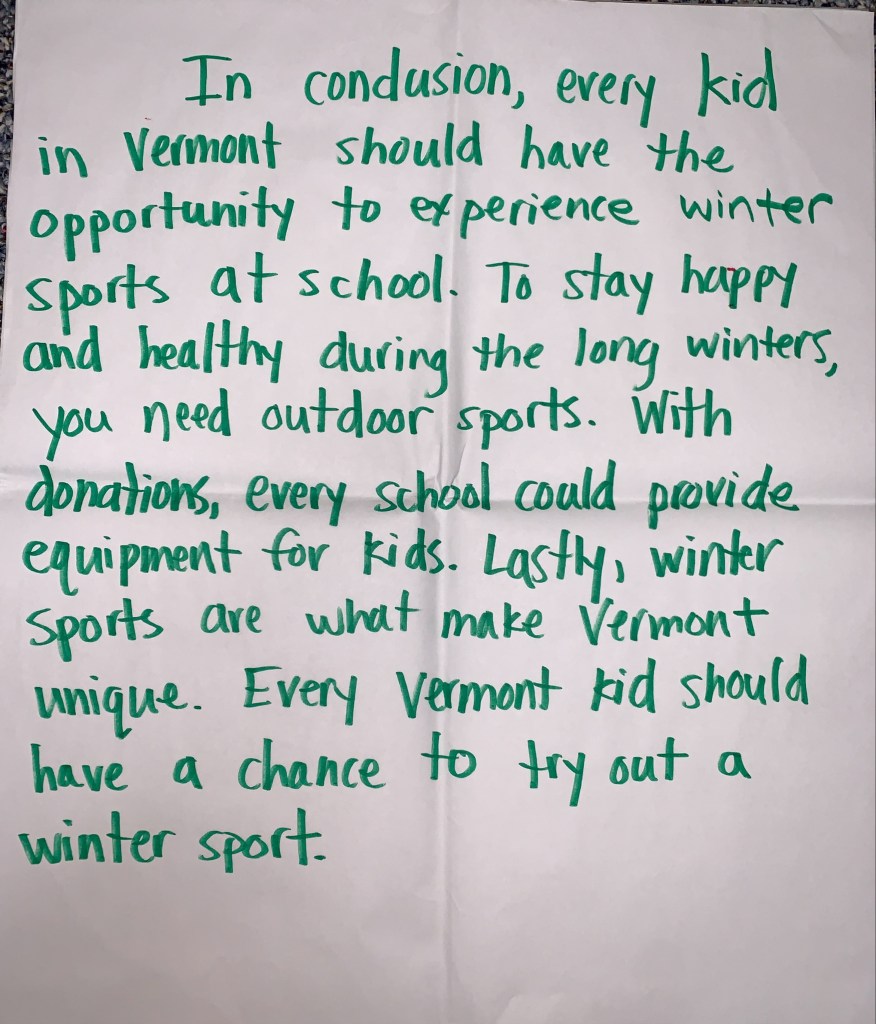 In conclusion, every kid
in Vermont should have the
opportunity to experience winter
sports at school. To stay happy
and healthy during the long winters,
you need outdoor sports. With
donations, every school could provide
equipment for kids. Lastly, winter
sports are what make Vermont
unique. Every Vermont kid should
have a chance to try out a
winter sport.